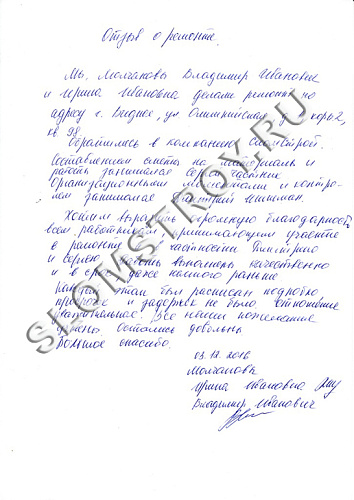 Отзыв о ремонте.
Мы, Молчановы Владимир Иванович
и Ирина Ивановна делали ремонт по
адресу г. Видное, ул Олимпийская, д корп 2,
кв 98.
Обратились в компанию Сломстрой.
Составлением сметы на материалы и
работы занимался Сергей
Организационными моментами и контро-
лем занимался Дмитрий
Хотим выразить огромную благодарность
всем работникам принимающим участие
в ремонте в частности Дмитрию
и Сергею. Работы выполнены качественно
и в срок даже немного раньше
Каждый этап был расписан подробно
и задержек не было. Отношение
Все наши пожелания
Остались довольны
Большое спасибо.
03.12.2016
Молчановы
Ирина Ивановна
Владимир Иванович
SLOMSTROY.RU